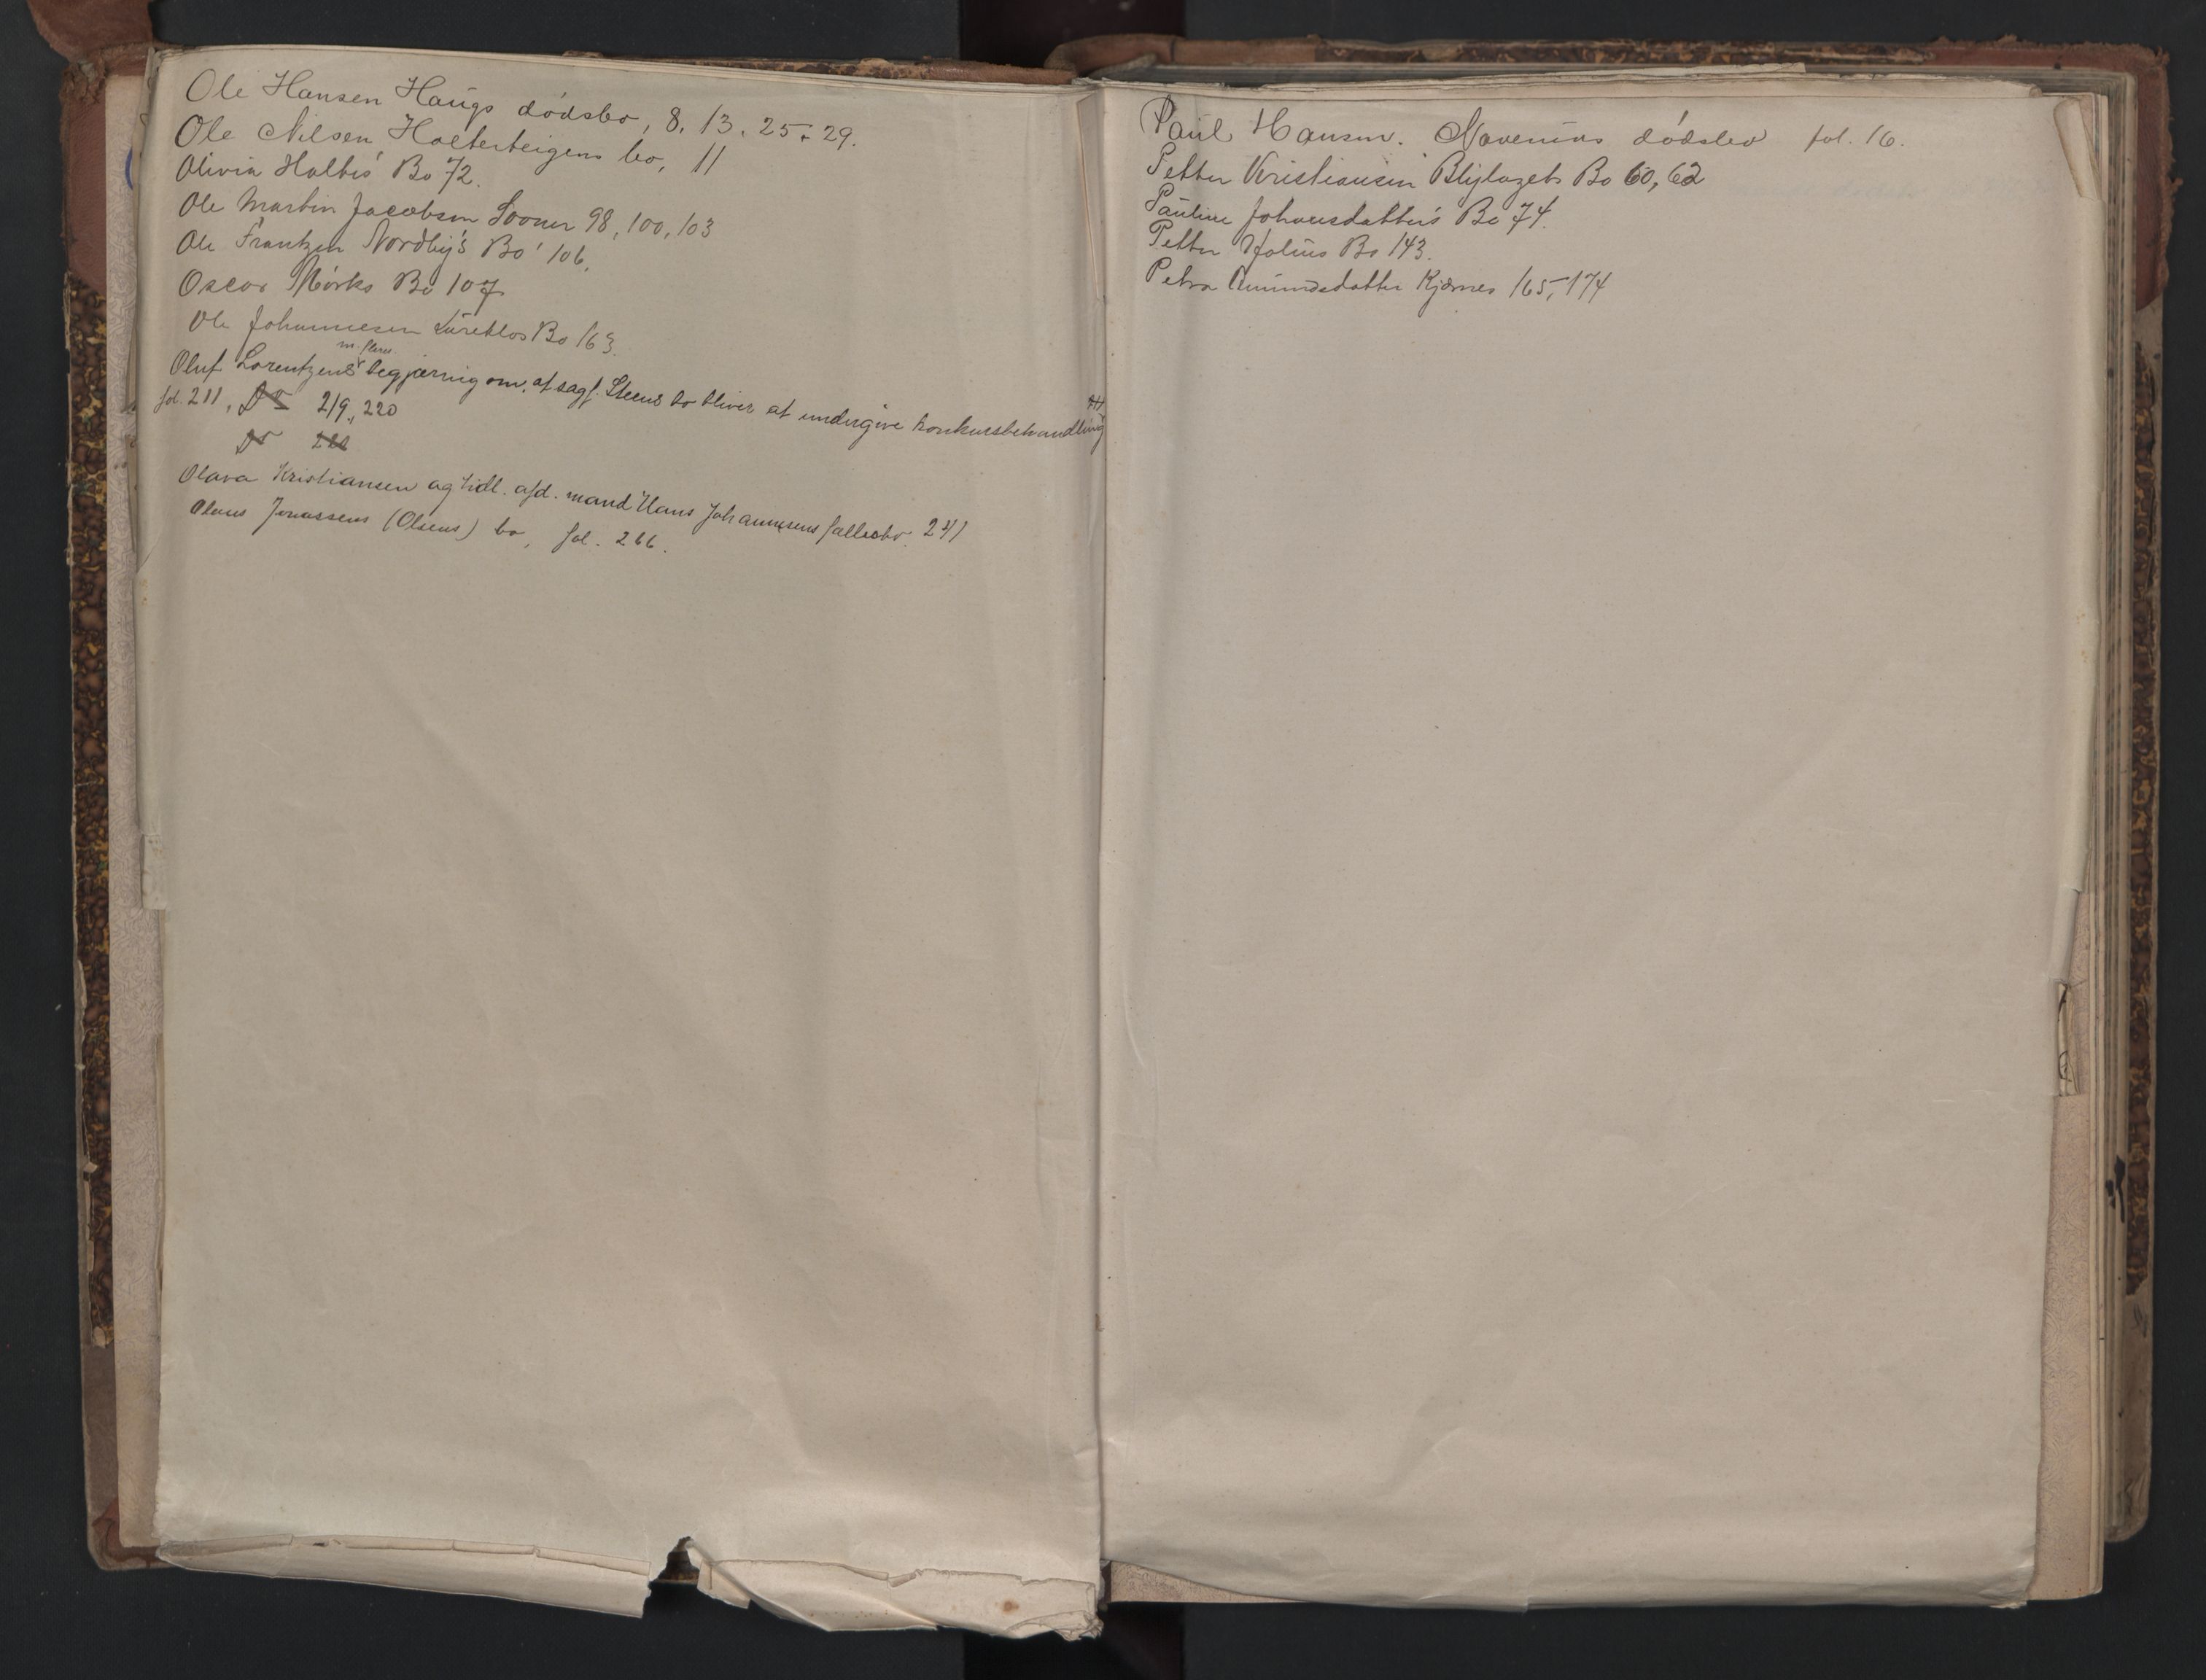 Ole Hansen Haugs dødsbo, 8, 13, 25, 29.
Ole Nilsen Holterteigens bo, 11
Olivia Holtes Bo 72.
Ole Martin Jacobsen Sooner 98, 100, 103
Ole Frantzen Nordby's Bo 106.
Oscar Mørks Bo 107
Ole Johannesen Bo 163.
m. flere
Oluf Lorentzens begjæring om, at sagf. Steens bo bliver at undergive konkursbehandling
fol. 211, 219, 220
Olava Kristiansen og tidl. afd. mand Hans Johannesens fællesbo. 241
Olaus Jonassens (Olsens) bo, fol. 266.
Paul Hansen. dødsbo fol. 16.
Petter Kristiansen Bo 60, 62
Pauline Johannesdatter's Bo 74.
Petter Bo 143.
Petra Amundsdatter Kjærnes 165, 174